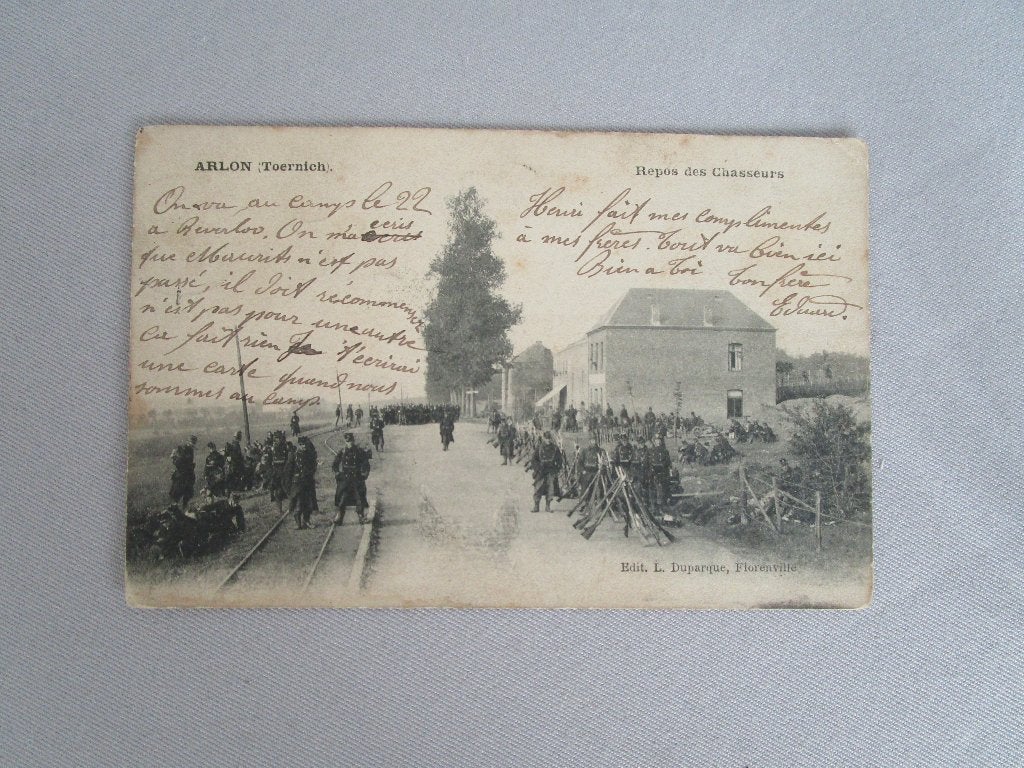 ARLON (Toernich).
Repos des Chasseurs
On va au camps le 22
à Beverloo. On m'a ecris
que Maurits n'est pas
passé, il doit récommencer
n'est pas pour une autre
Ca fait rien Je t'écrirai
une carte quand nous
sommes au camp.
Henri fait mes complimentes
à mes frères. Tout va bien ici
Bien a Toi Ton frère
Eduard.
Edit. L. Duparque, Florenville